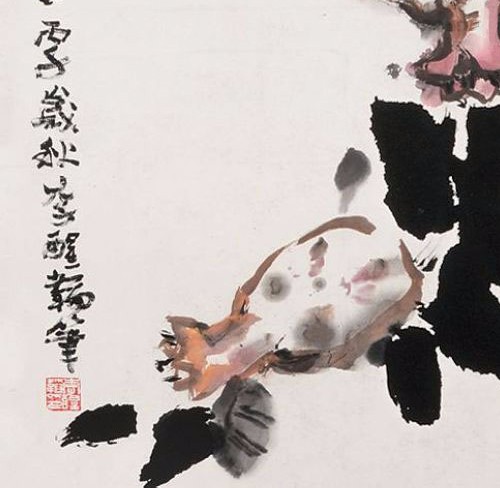 丙子歲秋李醒韜筆